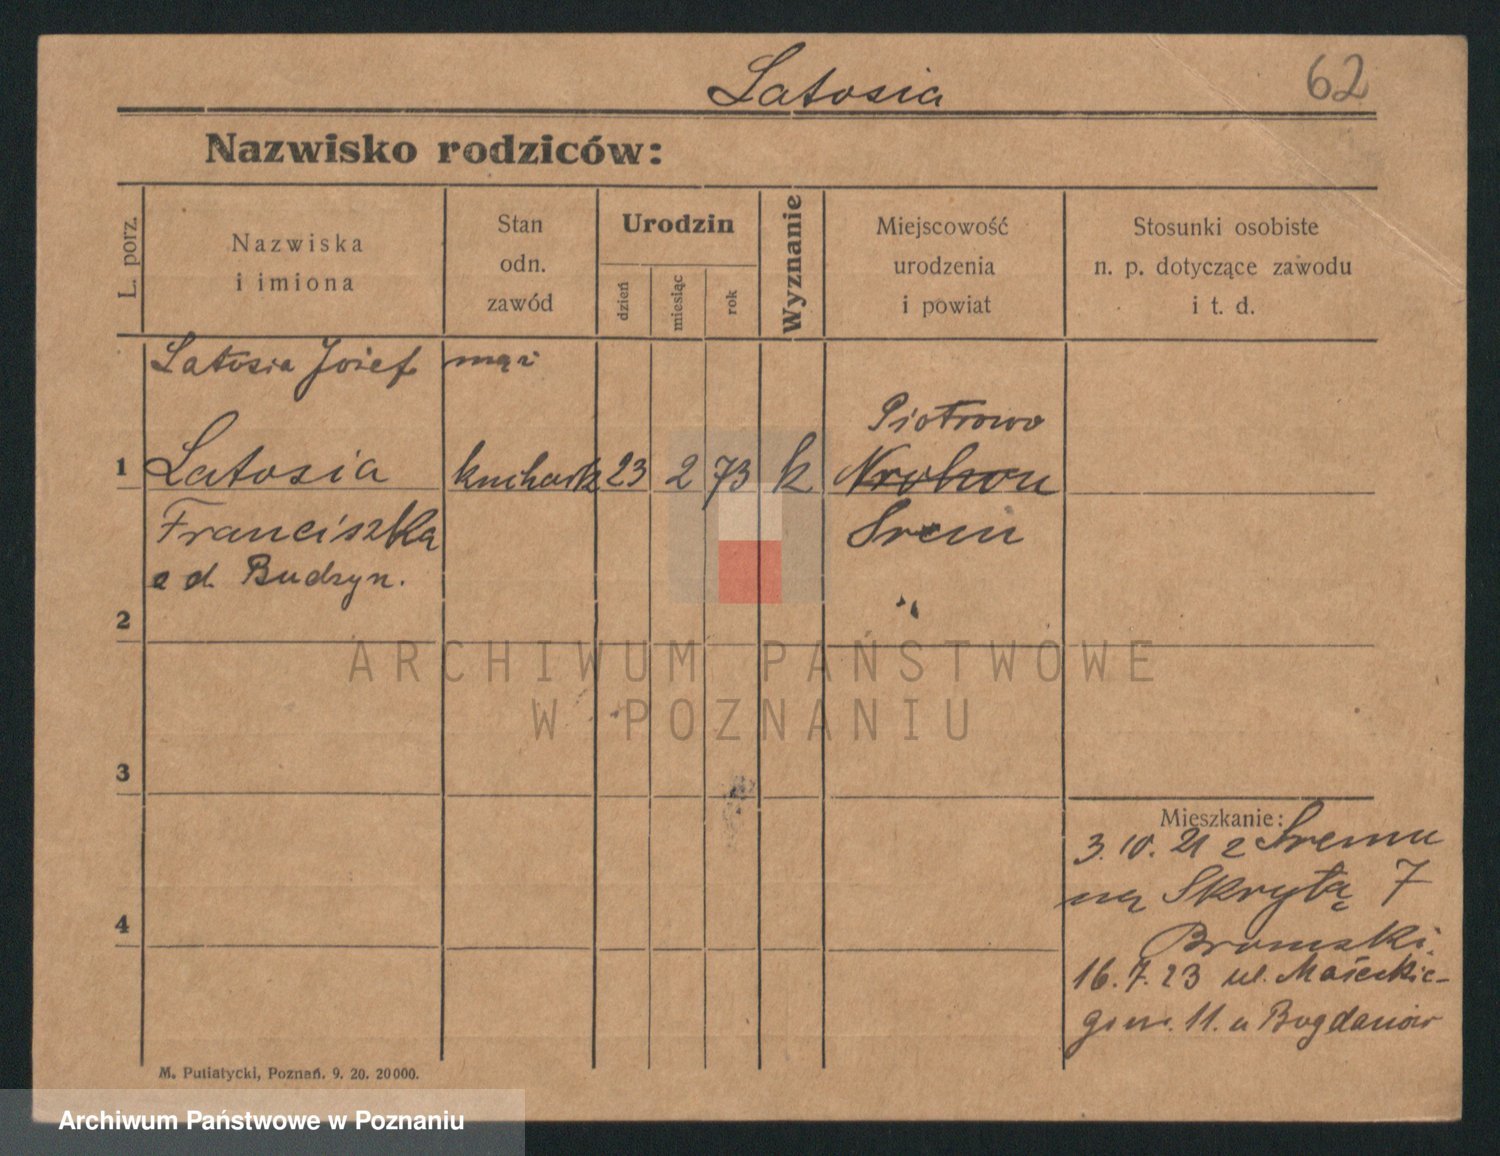 Latosia 62
Nazwisko rodziców:
L. porz.
Nazwiska
i imiona
Stan
odn.
zawód
Urodzin
dzień
miesiąc
rok
Wyznanie
Miejscowość
urodzenia
i powiat
Stosunki osobiste
n. p. dotyczące zawodu
i t. d.
Latosia Józef mąż
Piotrowo
1 Latosia kuchark 23 2 73 k
Franciszka Srem
od Budzyn.
2
ARCHIWUM PAŃSTWOWE
W POZNANIU
3
Mieszkanie:
3. 10. 21 z Sremu
na Skrytą 7
4
Bromski
16. 7. 23 ul. Małeckie-
go nr. 11. u Bogdanów
M. Putiatycki, Poznań. 9. 20. 20000.
Archiwum Państwowe w Poznaniu